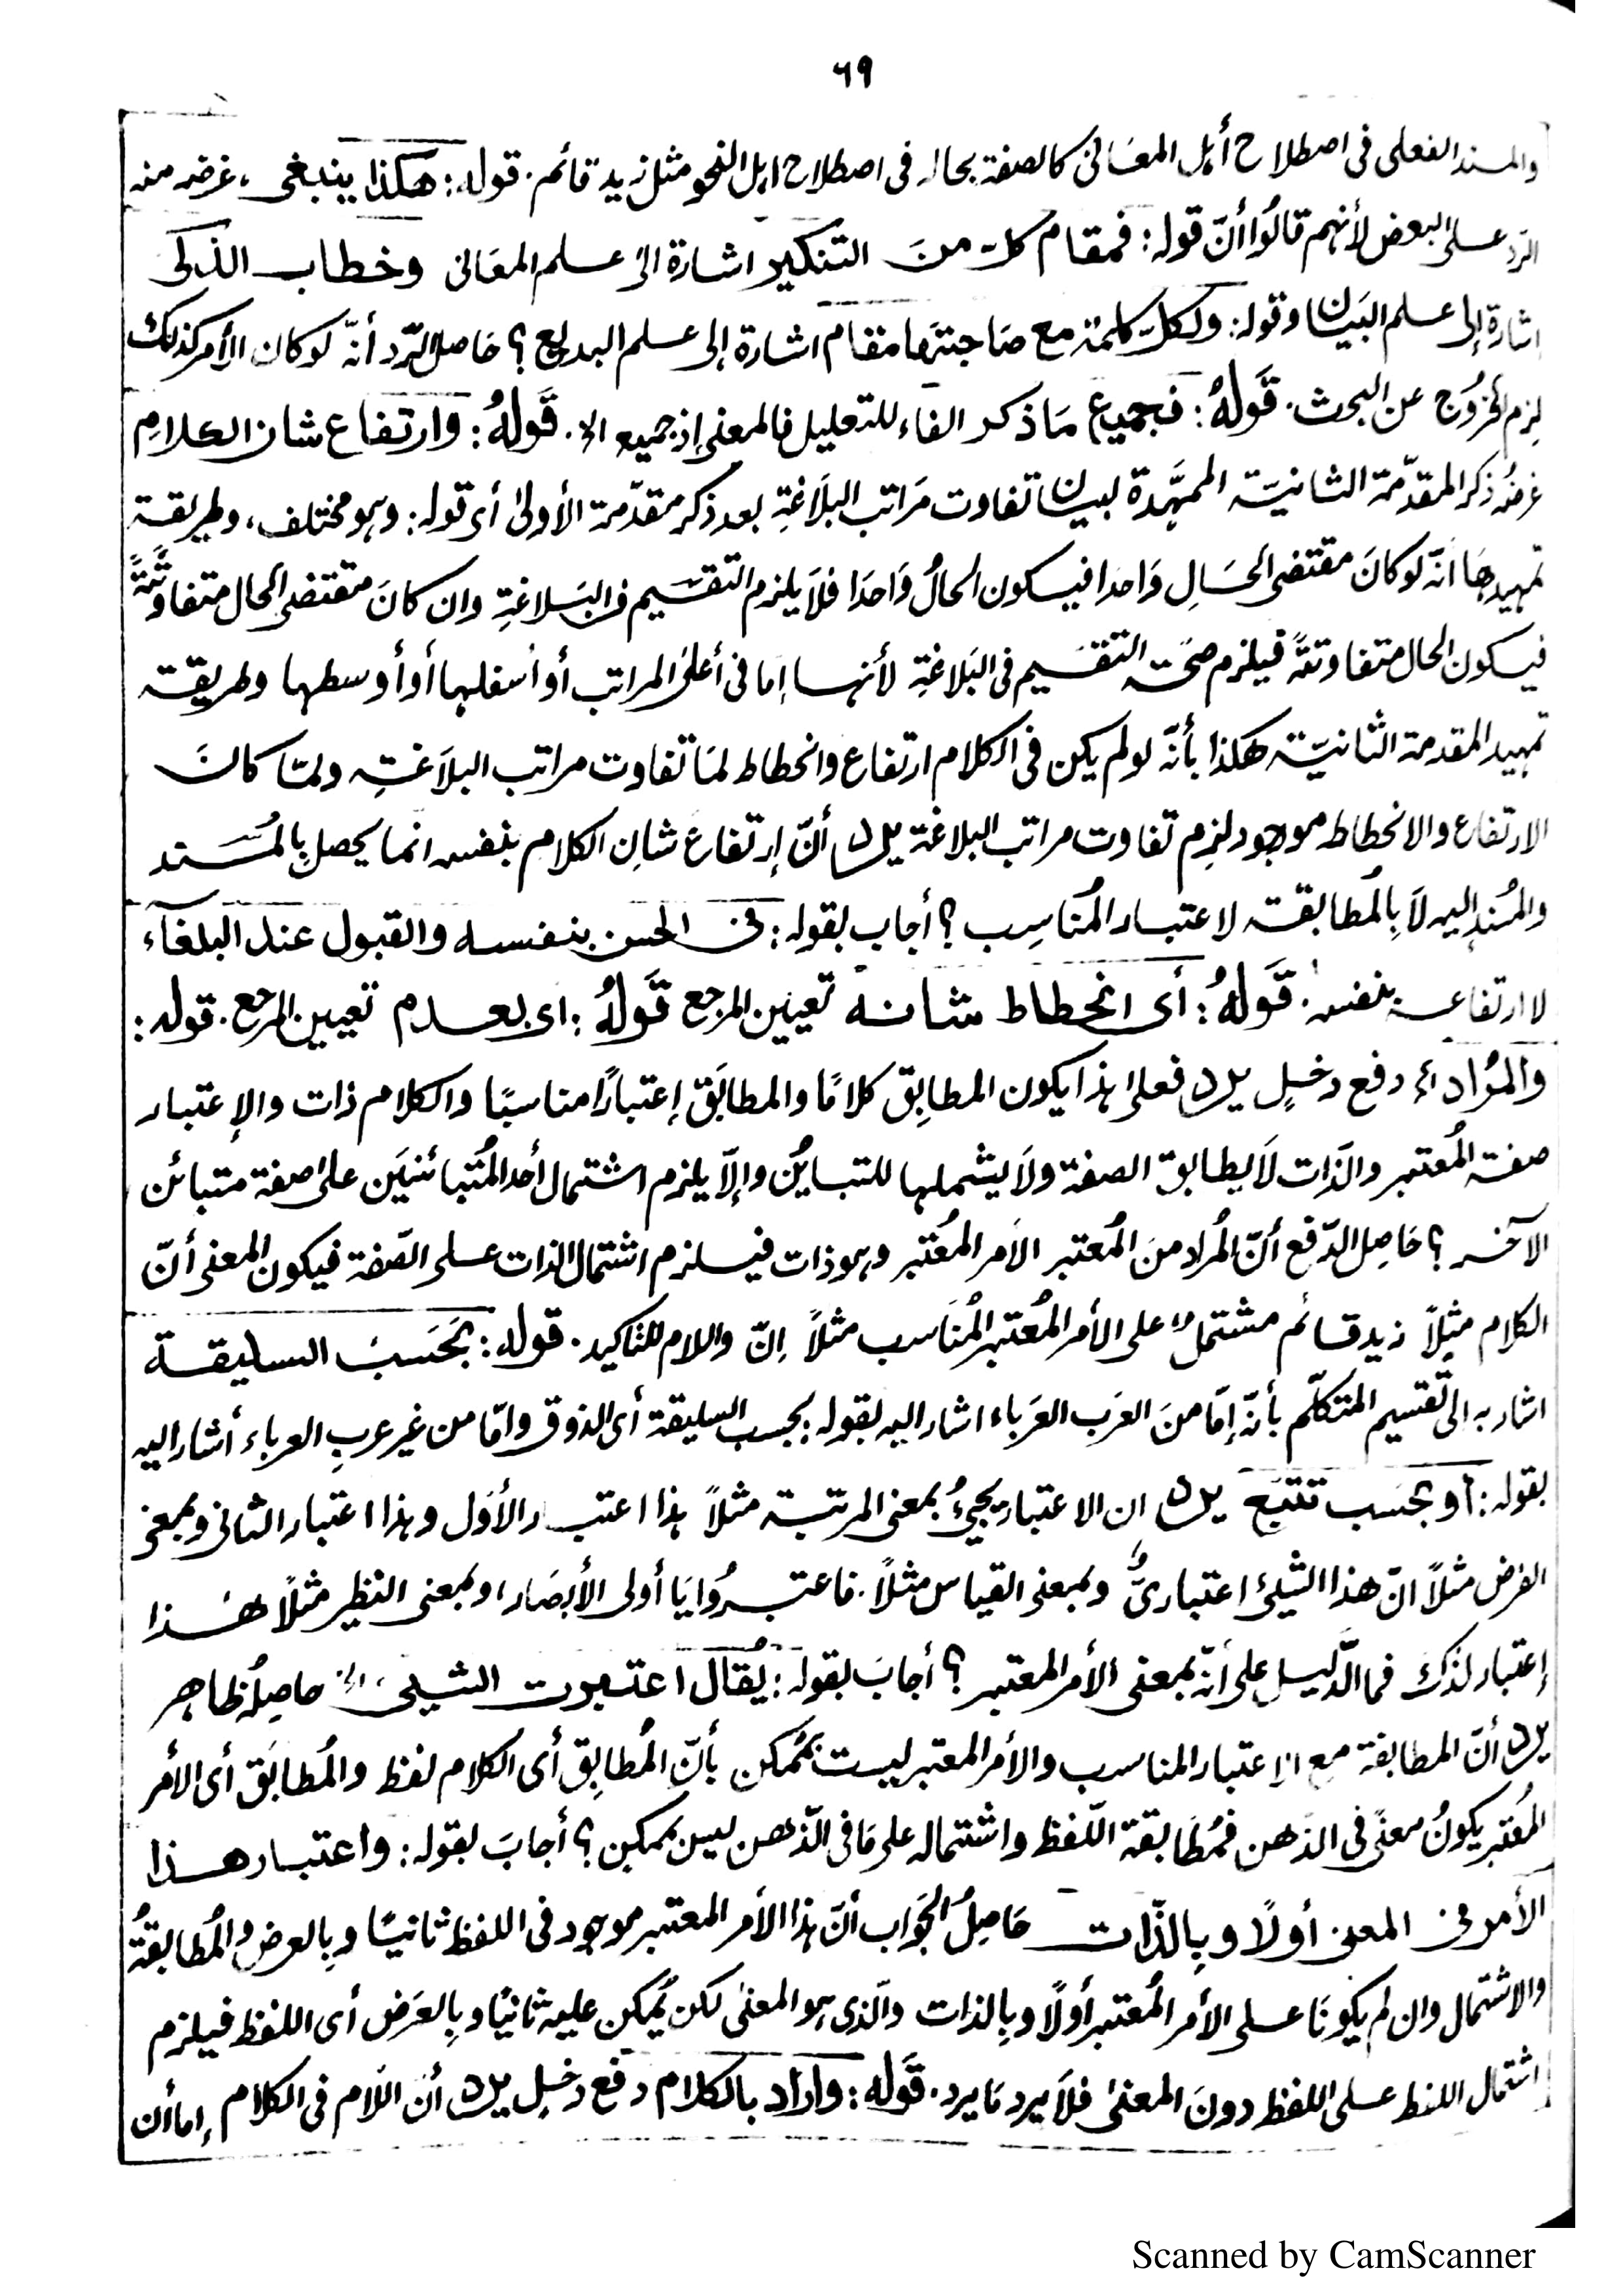 ٦٩
والمسند الفعلى فى اصطلاح أهل المعَانى كالصفة بحاله فى اصطلاح اهل النحو مثل زيد قائم. قوله: هكذا ينبغى، غرضه منه
الرّد على البعض لأنهم قالُوا أنّ قوله: فمقام كلّ منَ التنكير اشارة الىٰ علم المعَانى وخطاب الذكى
اشارة إلى علم البيَان وقوله: ولكلّ كلمة مع صَاحبتهَا مقام اشارة إلى علم البديع؟ حَاصل الرّد أنّه لو كان الأمر كذلك
لزم الخرُوج عن البحث. قَولُهُ: فجميع مَا ذكر الفاء للتعليل فالمعنى إذ جميع الخ. قَولُهُ: وارتفاع شان الكلامِ
غرضُه ذكر المقدّمة الثانيَة الممهَّدة لبيان تفاوت مَراتب البلَاغةِ بعد ذكر مقدّمة الأولىٰ أى قوله: وهو مختلف، وطريقة
تمهيدهَا انّه لو كانَ مقتضى الحَالِ وَاحدا فيكون الحالُ وَاحدَا فلَا يلزم التقسيم فى البَلاغةِ وان كانَ مقتضى الحال متفاوتةً
فيكون الحال متفاوتةً فيلزم صحّة التقسَيم فى البَلاغةِ لأنها إما فى أعلىٰ المراتب أو أسفلها أو أوسطها وطريقة
تمهيد المقدمة الثانيّة هكذا بأنّه لو لم يكن فى الكلام ارتفاع وانحطاط لمَا تفاوت مراتب البلَاغةِ ولمّا كانَ
الارتفاع والانحطاط موجود لزِم تفاوت مراتب البلاغة يرد أنّ إرتفاع شانِ الكلام بنفسه انما يحصل بِالمُسَند
والمُسند إليه لَا بِالمُطابقة لاعتبار المُناسِب؟ أجاب بقوله: فى الحسن بنفسه والقبول عند البلغآء
لا ارتفاعه بنفسه. قَولُهُ: أى انحطاط شانه تعيين المرجع قَولُهُ: اى بعدم تعيين المرجع. قوله:
والمرُاد الخ دفع دخلٍ يرد فعلىٰ هذا يكون المطابِق كلامًا والمطابَق إعتبارًا مناسبًا والكلام ذات والإعتبار
صفة المُعتبر والذَات لَا يطابق الصفة ولَا يشملها للتباين وإلّا يلزم اشتمال أحد المُتبائنيَن علىٰ صفة متبائن
الآخر؟ حَاصِل الدّفع أنّ المُراد منَ المُعتبر الأمر المُعتَبر وهو ذات فيلزم اشتمال الذات على الصّفة فيكون المعنى أنّ
الكلام مثلاً زيد قائم مشتملٌ على الأمر المُعتبر المُنَاسب مثلاً إنّ واللام للتاكيد. قوله: بحَسَبَ السليقة
اشار به الى تقسيم المتكلّم بأنّه إمّا منَ العرَب العرَباء اشار اليه بقوله: بحسب السليقة أى الذوق وامّا من غير عربِ العرباء أشار اليه
بقوله: أو بحسَب تتبَع يرد ان الاعتبار يجيءُ بمعنى المرتبة مثلاً هذا اعتبار الأوّل وهذا اعتبار الثانى وبمعنى
الفرض مثلًا انّ هذا الشيئ اعتبارىٌّ وبمعنى القياس مثلاً. فاعتبرُوا يَا أولى الأبصَار، وبمعنى النظير مثلاً هٰذا
إعتبار لذٰلك فما الدّليل على أنّه بمعنى الأمر المعتبر؟ أجابَ بقوله: يُقال اعتبرت الشيئ، الخ حاصِلُه ظاهر
يرد أنّ المطابقة مع الإعتبار المناسب والأمر المعتبر ليست بمُمكن بأنّ المُطابِق أى الكلام لفظ والمُطابَق أى الأمر
المُعتبر يكونُ معنىً فى الذهن فمُطَابقة اللّفظ واشتماله علىٰ مَا فى الذّهن ليس بممكن؟ أجابَ بقوله: واعتبار هذا
الأمر فى المعنى أولًا وبِالذّات حَاصِلُ الجَواب أنّ هذا الأمر المعتبر موجود فى اللفظ ثانيًا وبِالعرض والمُطابقةُ
والاشتمال وان لم يكونَا على الأمر المُعتبر أولًا وبالذات والّذى هو المعنىٰ لكن يُمكن عليه ثانيًا وبِالعَرَض أى اللفظ فيلزم
اشتمال اللفظ على اللفظ دونَ المعنىٰ فلَا يرد مَا يرد. قَوله: واراد بالكلام دفع دخلٍ يرد أنّ اللّام فى الكلام إما أن
Scanned by CamScanner